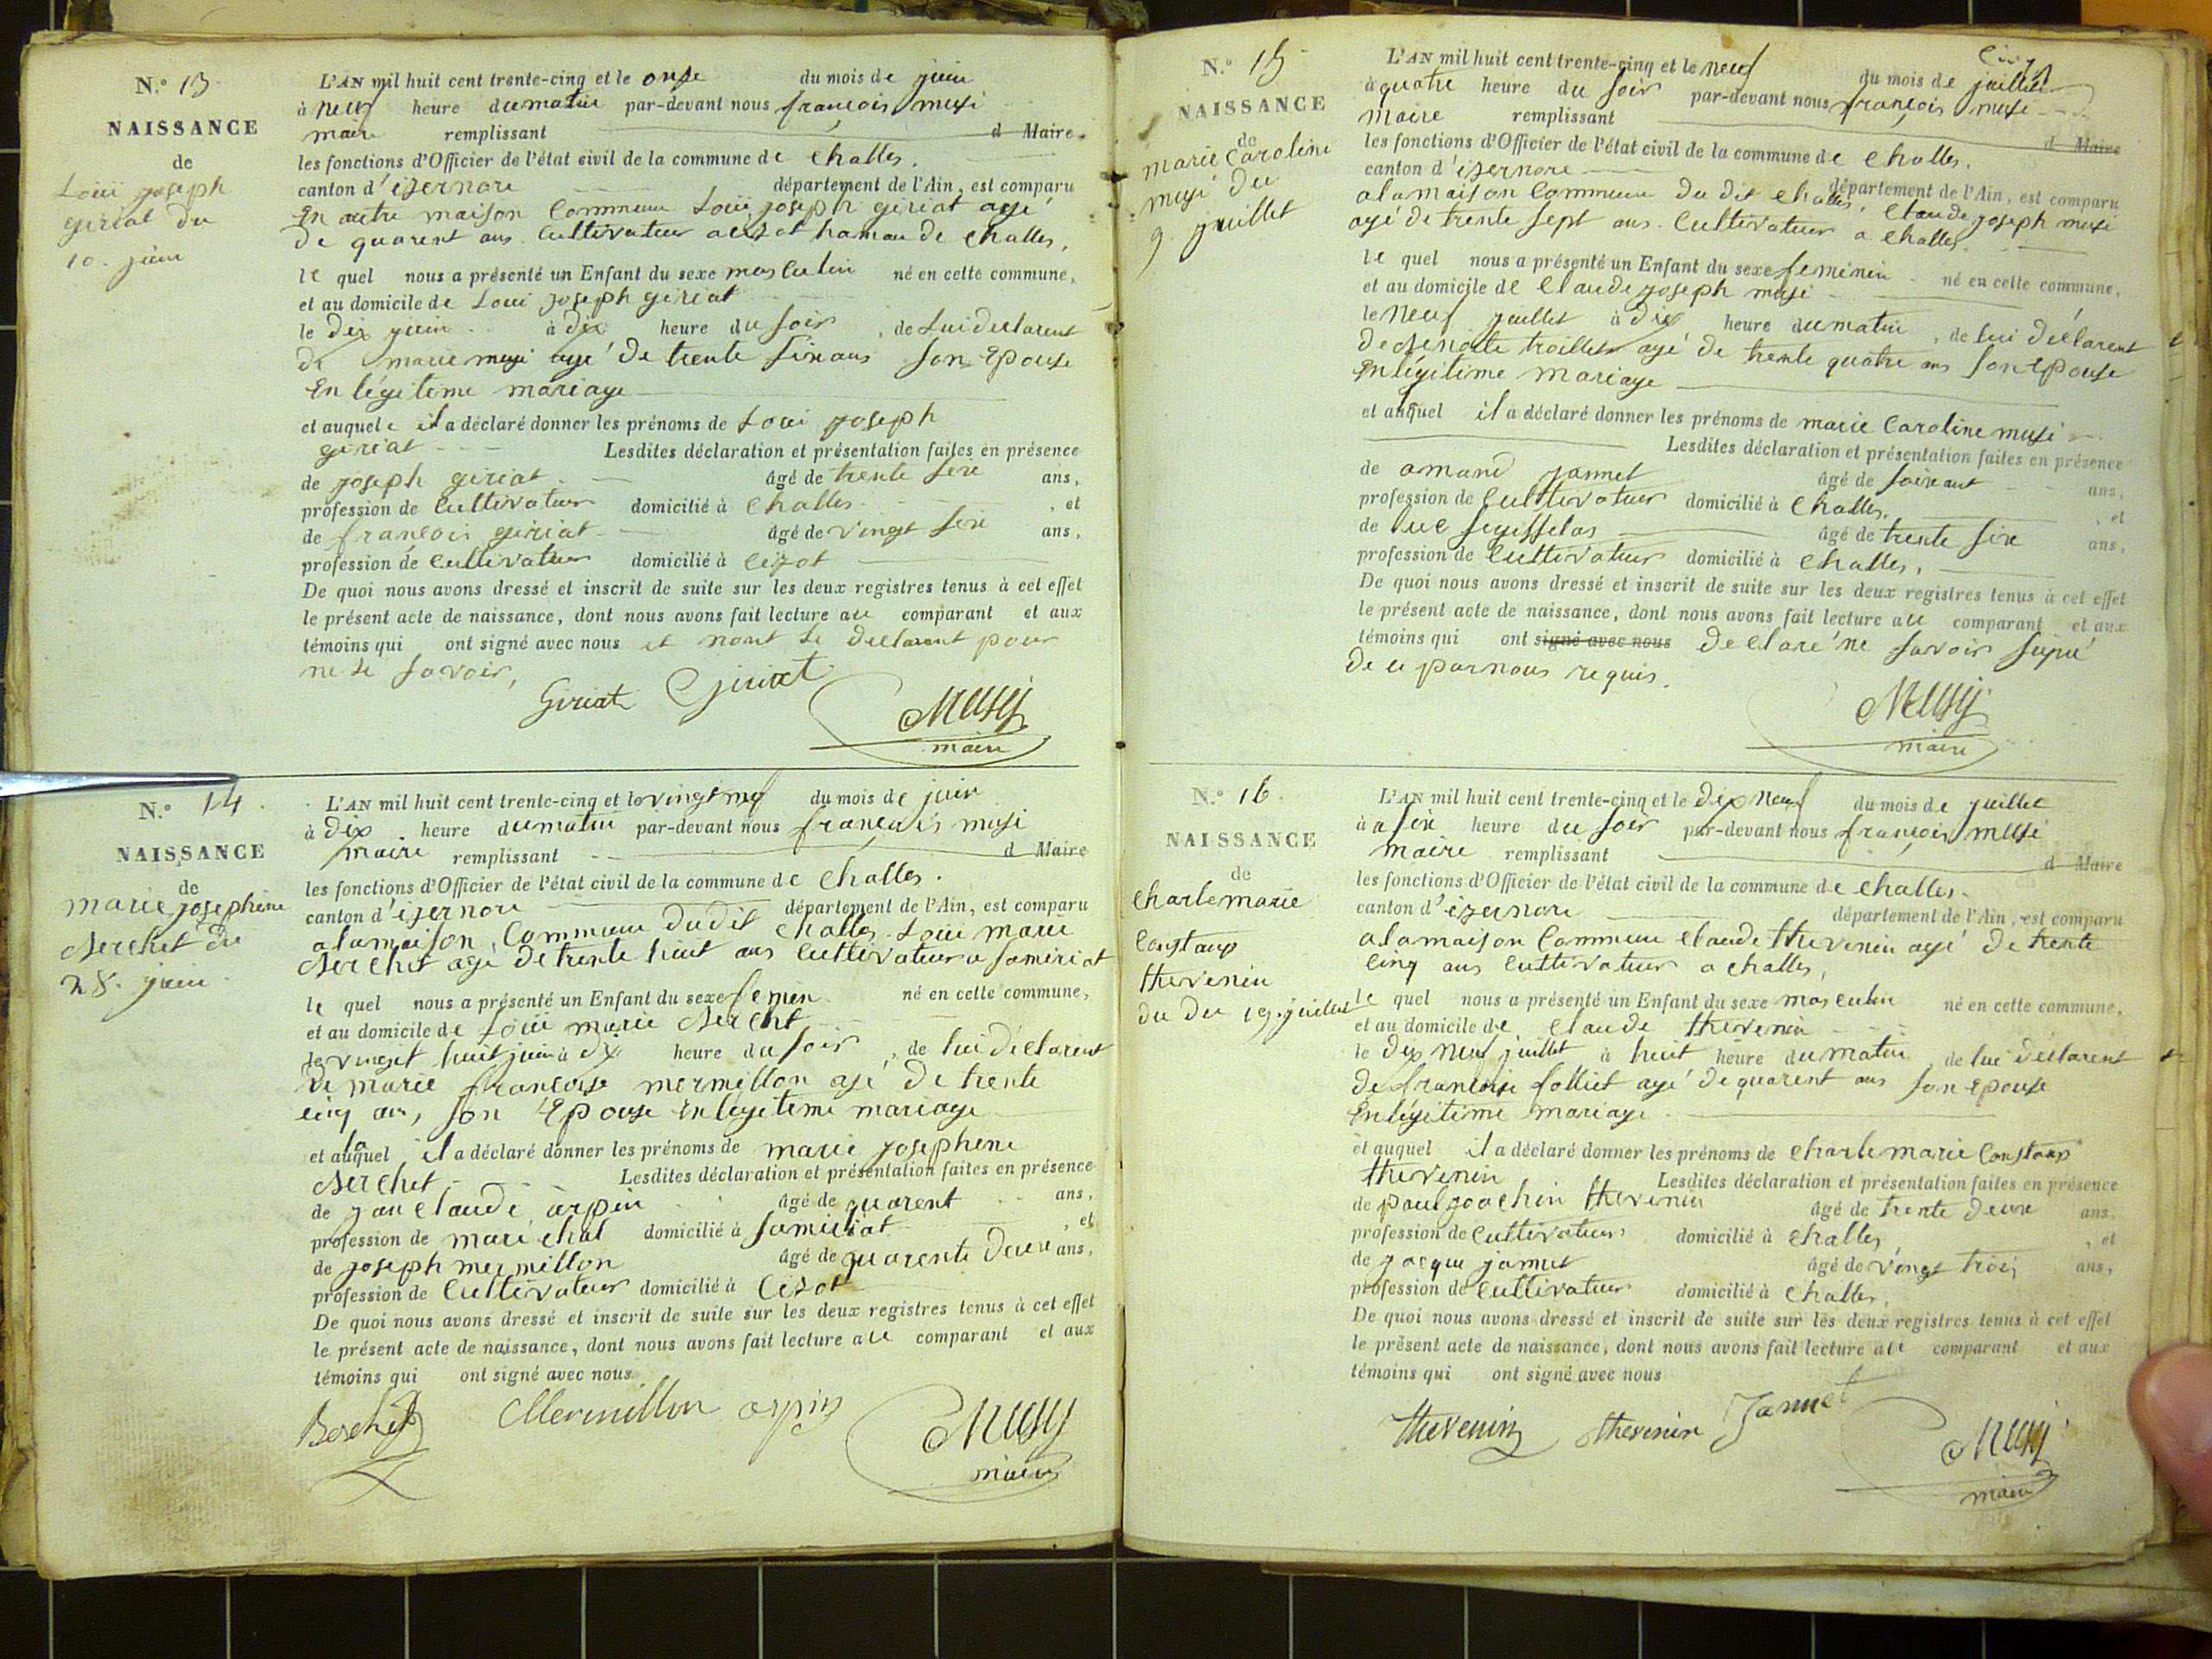 N.º 13
NAISSANCE
de
Loui joseph
giriat du
10. juin
L'AN mil huit cent trente-cinq et le onse du mois de juin
à neuf heure du matin par-devant nous françois musi
maire remplissant d Maire
les fonctions d'Officier de l'état civil de la commune de Challes.
canton d'izernore département de l'Ain, est comparu
En autre maison Commune Loui joseph giriat agé
De quarent ans. Cultivateur a cizot hamau de Challes,
le quel nous a présenté un Enfant du sexe masculin né en cette commune,
et au domicile de Loui joseph giriat
le Dix juin à dix heure du soir, de Lui declarent
De marie musi agé De trente six ans son Epouse
En légitime mariage
et auquel il a déclaré donner les prénoms de Loui joseph
giriat Lesdites déclaration et présentation faites en présence
de joseph giriat âgé de trente sixe ans,
profession de Cultivateur domicilié à Challes, et
de françois giriat âgé de vingt sixe ans,
profession de Cultivateur domicilié à Cizot
De quoi nous avons dressé et inscrit de suite sur les deux registres tenus à cet effet
le présent acte de naissance, dont nous avons fait lecture au comparant et aux
témoins qui ont signé avec nous et nont le declarent pour
ne le savoir,
Giriat Giriat Musy
maire
N.º 14.
NAISSANCE
de
marie josephine
Berchet du
28. juin
L'AN mil huit cent trente-cinq et le vingt neuf du mois de juin
à dix heure du matin par-devant nous françois musi
maire remplissant d Maire
les fonctions d'Officier de l'état civil de la commune de Challes.
canton d'izernore département de l'Ain, est comparu
a la maison Commune Du dit Challes. Loui marie
Berchet agé De trente huit ans Cultivateur a Samériat
le quel nous a présenté un Enfant du sexe femien né en cette commune,
et au domicile de Loui marie Berchet
le vingt huit juin à dix heure du soir, de lui déclarent
De marie françoise mermillon agé De trente
cinq ans, son Epouse En légitime mariage
et alaquel il a déclaré donner les prénoms de marie josephine
Berchet Lesdites déclaration et présentation faites en présence
de jan Claude arpin âgé de quarent ans,
profession de maréchal domicilié à Samériat, et
de joseph mermillon âgé de quarente deuxe ans,
profession de Cultivateur domicilié à Cizot
De quoi nous avons dressé et inscrit de suite sur les deux registres tenus à cet effet
le présent acte de naissance, dont nous avons fait lecture au comparant et aux
témoins qui ont signé avec nous
Berchet Mermillon arpin Musy
maire
N.º 15
NAISSANCE
de
marie Caroline
musi du
9. juillet
L'AN mil huit cent trente-cinq et le neuf du mois de juillet
à quatre heure du soir par-devant nous françois musi
Maire remplissant d Maire
les fonctions d'Officier de l'état civil de la commune de Challes.
canton d'izernore département de l'Ain, est comparu
a la maison Commune Du dit Challes, Claude joseph musi
agé de trente sept ans. Cultivateur a Challes
le quel nous a présenté un Enfant du sexe feminin né en cette commune,
et au domicile de Claude joseph musi
le neuf juillet à dix heure du matin, de lui déclarent
De Benoite traillet agé De trente quatre ans son Epouse
En légitime mariage
et auquel il a déclaré donner les prénoms de marie Caroline musi
Lesdites déclaration et présentation faites en présence
de amand jannet âgé de soixant ans,
profession de Cultivateur domicilié à Challes, et
de luc seysselas âgé de trente sixe ans,
profession de Cultivateur domicilié à Challes,
De quoi nous avons dressé et inscrit de suite sur les deux registres tenus à cet effet
le présent acte de naissance, dont nous avons fait lecture au comparant et aux
témoins qui ont signé avec nous Declaré ne savoir signé
De ce par nous requis.
Musy
maire
N.º 16.
NAISSANCE
de
Charle marie
Constanp
thevenin
du Du 19. juillet
L'AN mil huit cent trente-cinq et le dix neuf du mois de juillet
à a sixe heure du soir par-devant nous françois musi
maire remplissant d Maire
les fonctions d'Officier de l'état civil de la commune de Challes.
canton d'izernore département de l'Ain, est comparu
a la maison Commune Claude thevenin agé De trente
cinq ans Cultivateur a Challes,
le quel nous a présenté un Enfant du sexe masculin né en cette commune,
et au domicile de Claude thevenin
le Dix neuf juillet à huit heure du matin, de lui déclarent
De françoise folliet agé De quarent ans son Epouse
En légitime mariage
et auquel il a déclaré donner les prénoms de Charle marie Constanp
thevenin Lesdites déclaration et présentation faites en présence
de paul joachin thevenin âgé de trente deuxe ans,
profession de Cultivateur domicilié à Challes, et
de jacque jannet âgé de vingt trois ans,
profession de Cultivateur domicilié à Challes,
De quoi nous avons dressé et inscrit de suite sur les deux registres tenus à cet effet
le présent acte de naissance, dont nous avons fait lecture au comparant et aux
témoins qui ont signé avec nous
thevenin thevenin Jannet Musy
maire